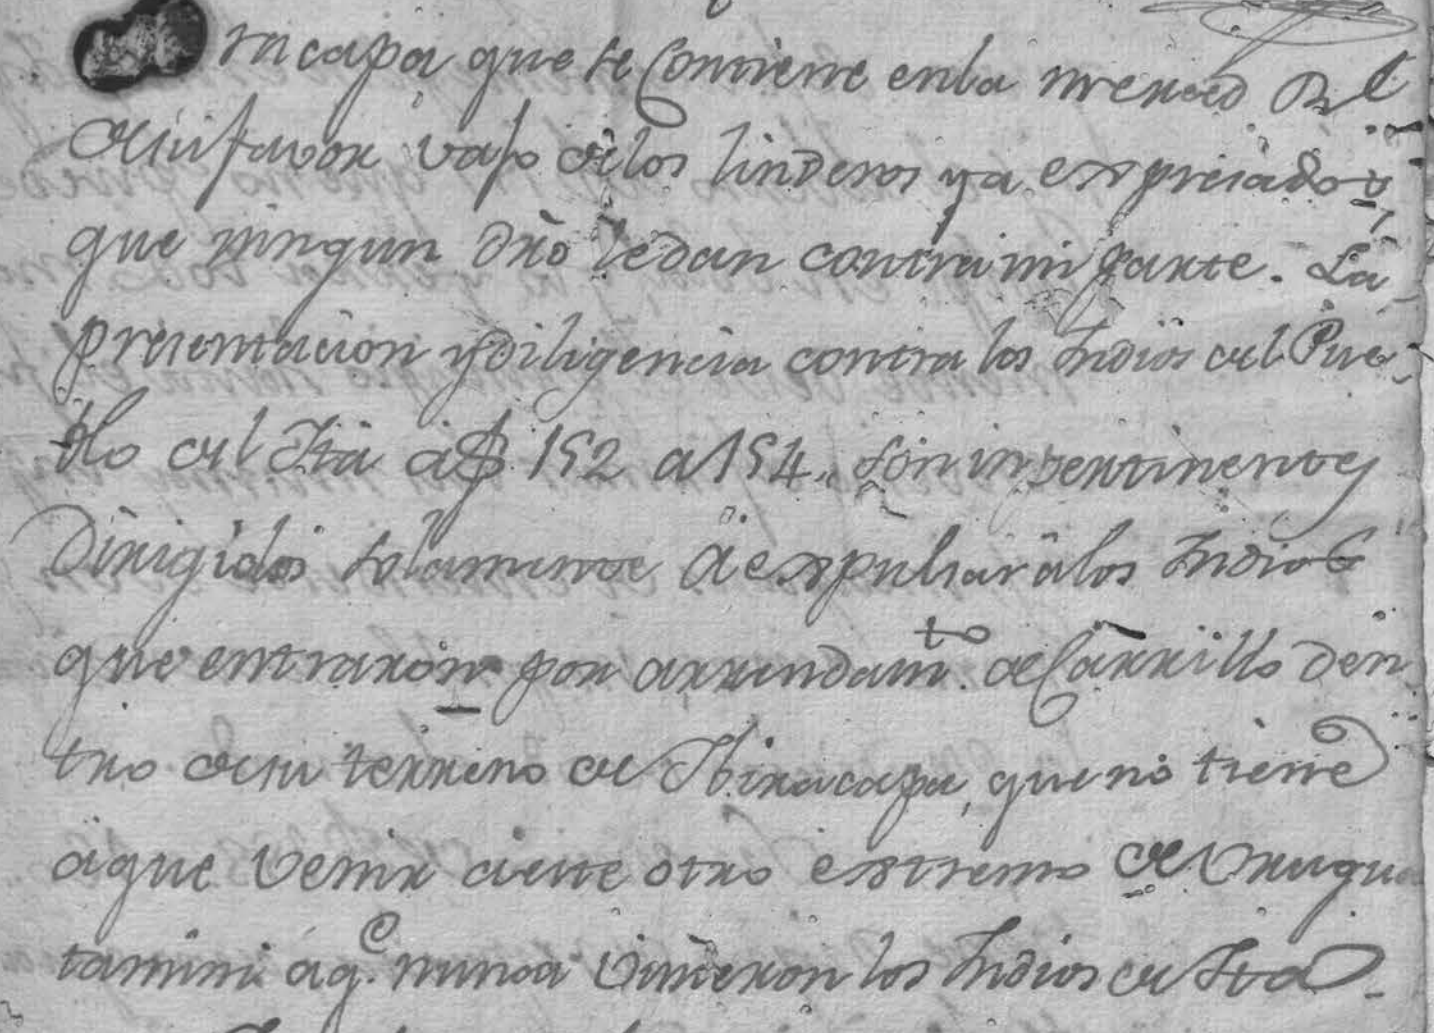 racapa que se Contiene enla merced R.l
desu favor vajo delos linderos ya expresados,
que ningun dr̃o ledan contra mi parte. La
presentacion y diligencia contra los Indios del Pue-
blo del Itá á f 152 a 154. son inpertinentes
Dirigidos solamente á expulsar álos Indios
que entraron por arrendam.to de Carrillo den
tro desu terreno de Ibiracapa, que no tiene
áque venir aeste otro extremo de Urugua
tamini áq.e nunca vinieron los Indios de Ita-